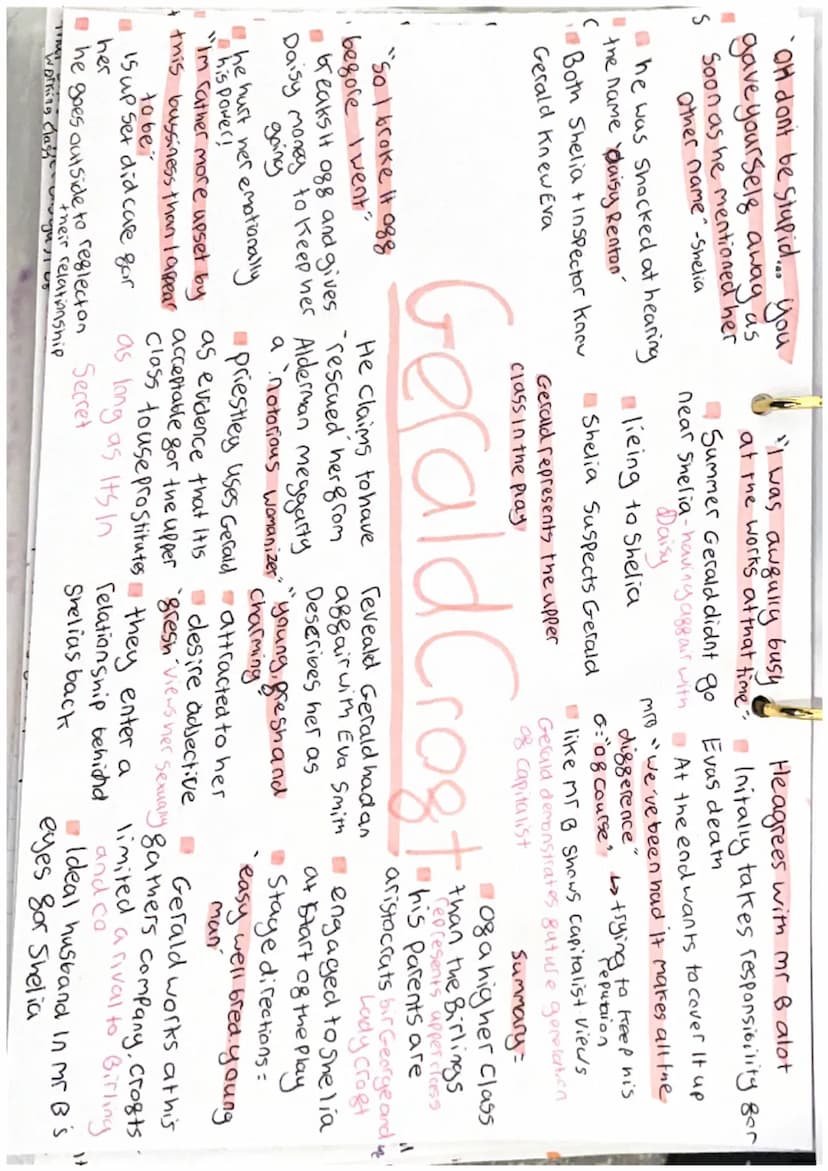 "OH don't be stupid... you
gave yourself away as
soon as he mentioned her
other name" -Shelia
he was shocked at hearing
the name 'daisy Renton'
Both Shelia + Inspector know
Gerald knew Eva
"I was awfully busy
at the works at that time"
Summer Gerald didnt go
near Shelia - having affair with
Daisy
lieing to Shelia
Shelia suspects Gerald
Gerald represents the upper
class in the play
He agrees with mr B alot
Initally takes responsibility for
Evas death
At the end wants to cover It up
mr B "we've been had it makes all the
difference"
G: "of course" ↳ trying to keep his
reputaion
like mr B shows capitalist views
Gerald demonstrates future generation
of capitalist
Gerald Croft
Summary =
of a higher class
than the Birlings
represents upper class
his parents are
aristocrats sir George and
Lady Croft
engaged to Shelia
at start of the play
Stage directions =
'easy well bred young
man'
Gerald works at his
fathers company, Crofts
limited a rival to Birling
and co
Ideal husband In mr B's
eyes for Shelia
"So I broke It off
before I went"
breaks it off and gives
Daisy money to keep her
going
he hurt her emotionally
his power!
"Im rather more upset by
this bussiness than I appear
to be"
Is upset did care for
her
he goes outside to reflect on
their relationship
He claims to have
'rescued' her from
Alderman meggarty
a 'notorious womanizer"
priestley uses Gerald
as evidence that It is
acceptable for the upper
class to use prostitutes
as long as Its In
Secret
reveald Gerald had an
affair with Eva Smith
Describes her as
"young, fresh and
charming"
attracted to her
desire adjective
'fresh' views her sexually
they enter a
relationship behind
Shelias back